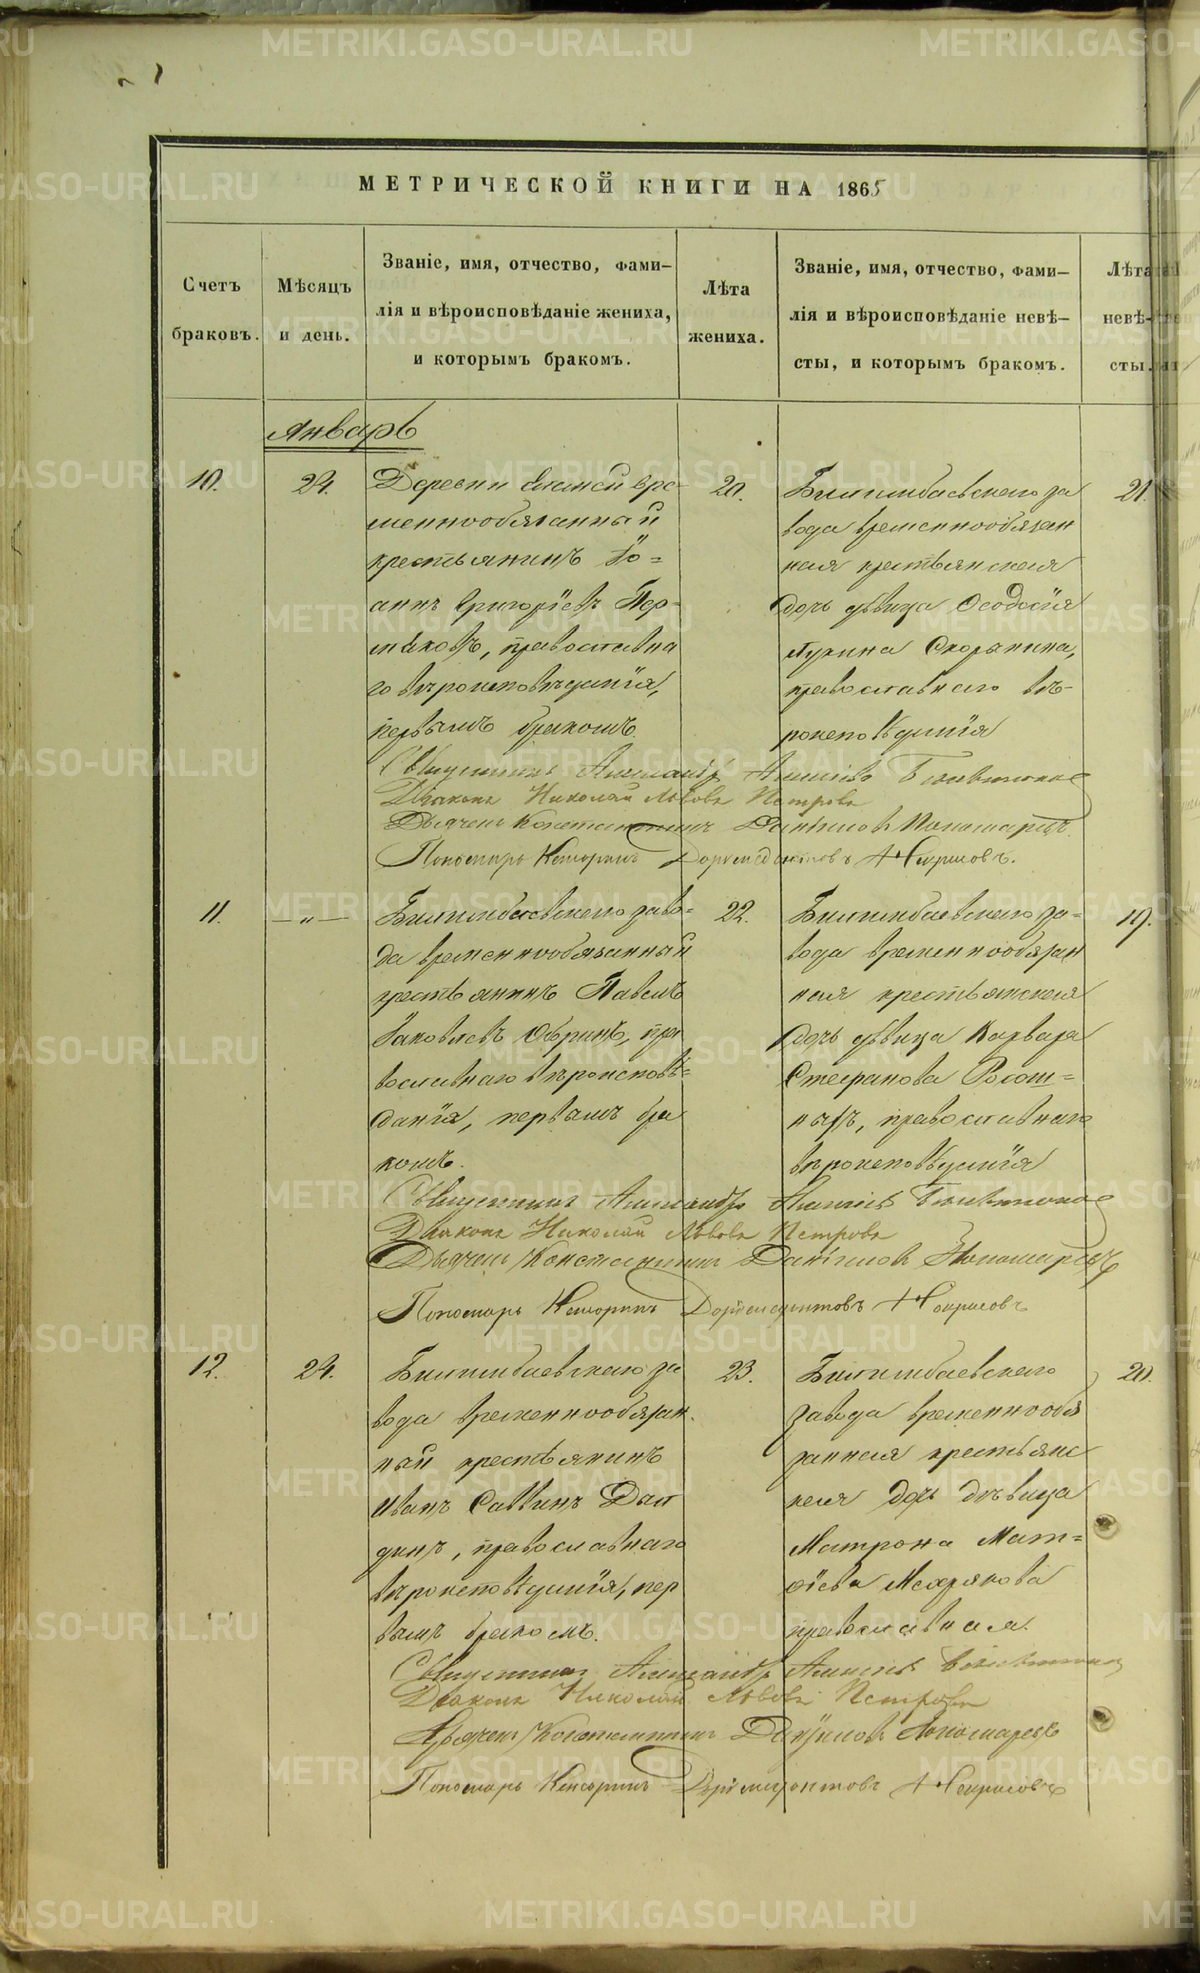 МЕТРИЧЕСКОЙ КНИГИ НА 1865
Счетъ браковъ.
Мѣсяцъ и день.
Званіе, имя, отчество, фами-
лія и вѣроисповѣданіе жениха,
и которымъ бракомъ.
Лѣта жениха.
Званіе, имя, отчество, фами-
лія и вѣроисповѣданіе невѣ-
сты, и которымъ бракомъ.
Лѣта невѣ-
сты.
Январь
10.
24.
Деревни вре-
меннообязанный
крестьянинъ Іо-
аннъ Григоріевъ Пер-
мяковъ, православна
го вѣроисповѣданія,
первымъ бракомъ.
20.
Билимбаевскаго за
вода временнообязан
ная крестьянская
дочь дѣвица Ѳеодосія
Лукина Скорынина,
православнаго вѣ-
роисповѣданія
21.
Священникъ Александръ
Діаконъ Николай Львовъ Петровъ
Дьячекъ Константинъ Даніиловъ Пономаревъ
Пономарь Кенсоринъ Доримедонтовъ Некрасовъ.
11.
— „ —
Билимбаевскаго заво-
да временнообязанный
крестьянинъ Павелъ
Яковлевъ пра
вославнаго вѣроисповѣ-
данія, первымъ бра
комъ.
22.
Билимбаевскаго за-
вода временнообязан
ная крестьянская
дочь дѣвица Варвара
Стефанова
ныхъ, православнаго
вѣроисповѣданія
19.
Священникъ Александръ
Діаконъ Николай Львовъ Петровъ
Дьячекъ Константинъ Даніиловъ Пономаревъ
Пономарь Кенсоринъ Доримедонтовъ Некрасовъ
12.
24.
Билимбаевскаго за
вода временнообязан
ный крестьянинъ
Иванъ Саввинъ
православнаго
вѣроисповѣданія, пер
вымъ бракомъ.
23.
Билимбаевскаго
завода временнообя
занная крестьянс
кая дочь дѣвица
Матрона Мат-
ѳіева Мехрякова
православная.
20.
Священникъ Александръ
Діаконъ Николай Львовъ Петровъ
Дьячекъ Константинъ Даніиловъ Пономаревъ
Пономарь Кенсоринъ Доримедонтовъ Некрасовъ
METRIKI.GASO-URAL.RU